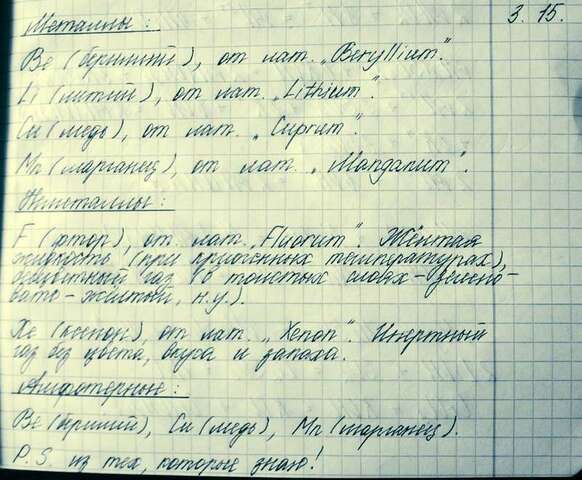 Металлы:
3.15.
Be (бериллий), от лат. „Beryllium".
Li (литий), от лат. „Lithium".
Cu (медь), от лат. „Cuprum".
Mn (марганец), от лат. „Manganum".
Неметаллы:
F (фтор), от лат. „Fluorum". Жёлтая
жидкость (при пониженных температурах),
бесцветный газ (в толстых слоях - зелено-
вато-желтый, н.у.).
Xe (ксенон), от лат. „Xenon". Инертный
газ без цвета, вкуса и запаха.
Амфотерные:
Be (берилий), Cu (медь), Mn (марганец).
P.S. из тех, которые знаю!